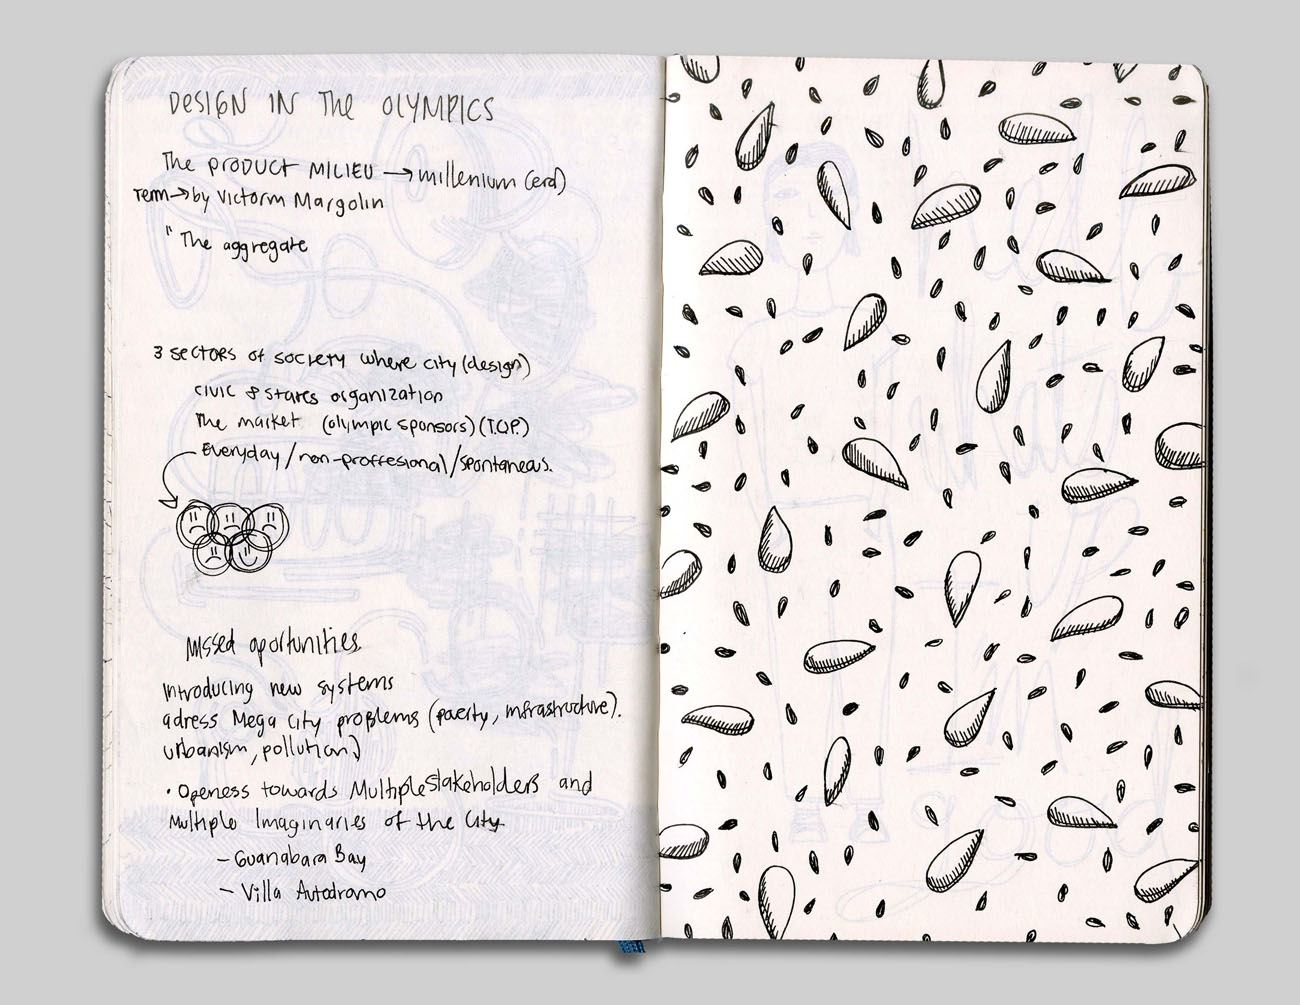 DESIGN IN THE OLYMPICS
The PRODUCT MILIEU → millenium (era)
Term → by Victorm Margolin
" The aggregate
3 sectors of society where city (design)
civic & states organization
The market (olympic sponsors) (T.O.P.)
Everyday / non-proffesional / spontaneus.
Missed oportunities.
Introducing new systems
adress Mega city problems (poverty, infrastructure).
urbanism, pollution)
· Openess towards Multiple stakeholders and
Multiple Imaginaries of the City
- Guanabara Bay
- Villa Autodramo